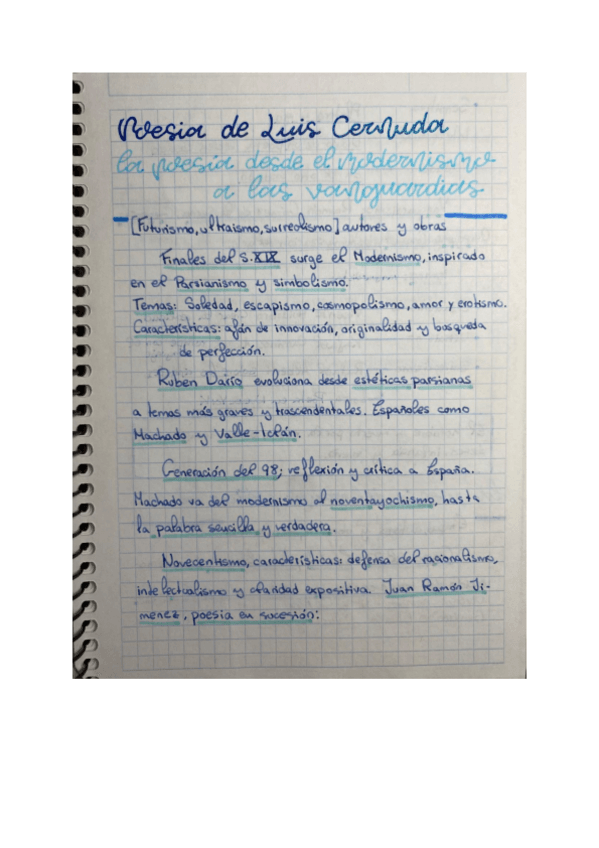 Poesia de Luis Cernuda
la poesia desde el modernismo
a las vanguardias
[Futurismo, ultraismo, surrealismo] autores y obras
Finales del S.XIX surge el Modernismo, inspirado
en el Parsianismo y simbolismo.
Temas: Soledad, escapismo, cosmopolismo, amor y erotismo.
Características: afán de innovación, originalidad y bosqueda
de perfección.
Ruben Darío evoluciona desde estéticas parsianas
a temas más graves y trascendentales. Españoles como
Machado y Valle-Iclán.
Generación del 98; reflexión y crítica a España.
Machado va del modernismo al noventayochismo, hasta
la palabra sencilla y verdadera.
Novecentismo, características: defensa del racionalismo,
intelectualismo y claridad expositiva. Juan Ramón Ji-
menez, poesía en sucesión: